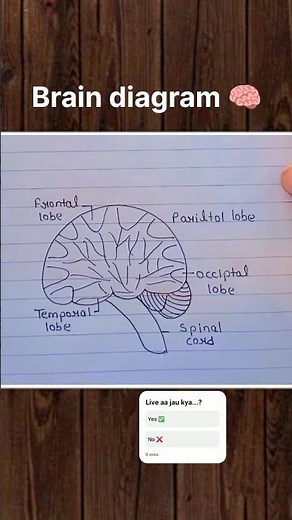 Brain diagram 🧠
Frontal
lobe
Pariltol lobe
occiptal
lobe
Temporal
lobe
Spinal
cord
Live aa jau kya...?
Yes ✅
No ❌